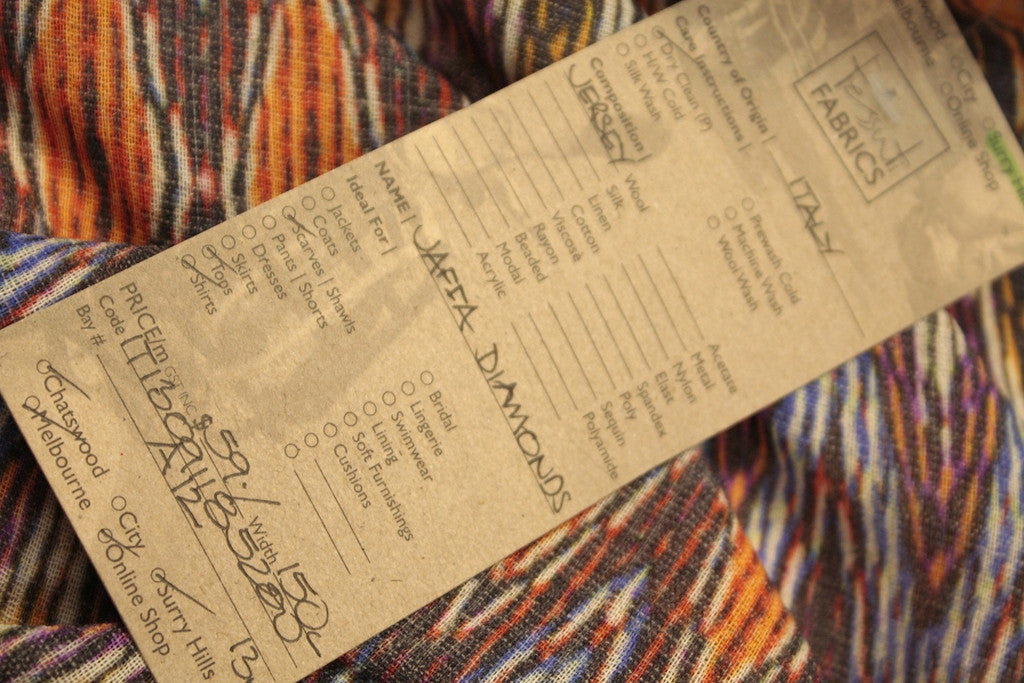 City
Online Shop
Tessuti
FABRICS
Country of Origin | ITALY
Care Instructions |
Dry Clean (P)
H/W Cold
Silk Wash
Prewash Cold
Machine Wash
Wool Wash
Composition |
JERSEY Wool
Silk
Linen
Cotton
Viscose
Rayon
Beaded
Modal
Acrylic
Acetate
Metal
Nylon
Elast
Spandex
Poly
Sequin
Polyamide
NAME | JAFFA DIAMONDS
Ideal For |
Jackets
Coats
Scarves | Shawls
Pants | Shorts
Dresses
Skirts
Tops
Shirts
Bridal
Lingerie
Swimwear
Lining
Soft Furnishings
Cushions
PRICE/m GST INC $59./ Width 150c
Code
Bay # A12
Chatswood City Surry Hills
Melbourne Online Shop